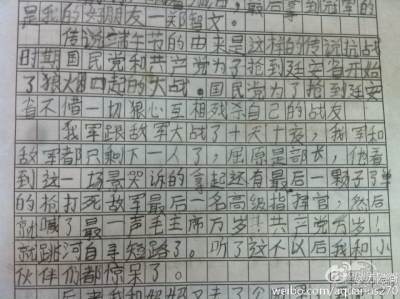 是我的好朋友一郑智文。
传说端午节的由来是这样的传说抗战
时期国民党和共产党为了抢到延安省开始
了狼烟四起的大战。国民党为了抢到延安
省不借一切狠心互相残杀自己的战友
我军跟敌军大战了十天十夜，我军和
敌军都只剩下一人了，屈原是部长，他看
到这一场景哭诉的拿起还有最后一颗子弹
的枪打死敌军最后一名高级指挥官，然后
就喊了最一声毛主席万岁！共产党万岁！
就跳河自寻短路了。听了这个以后我和小
伙伴们都惊呆了。
weibo.com/aquarius270